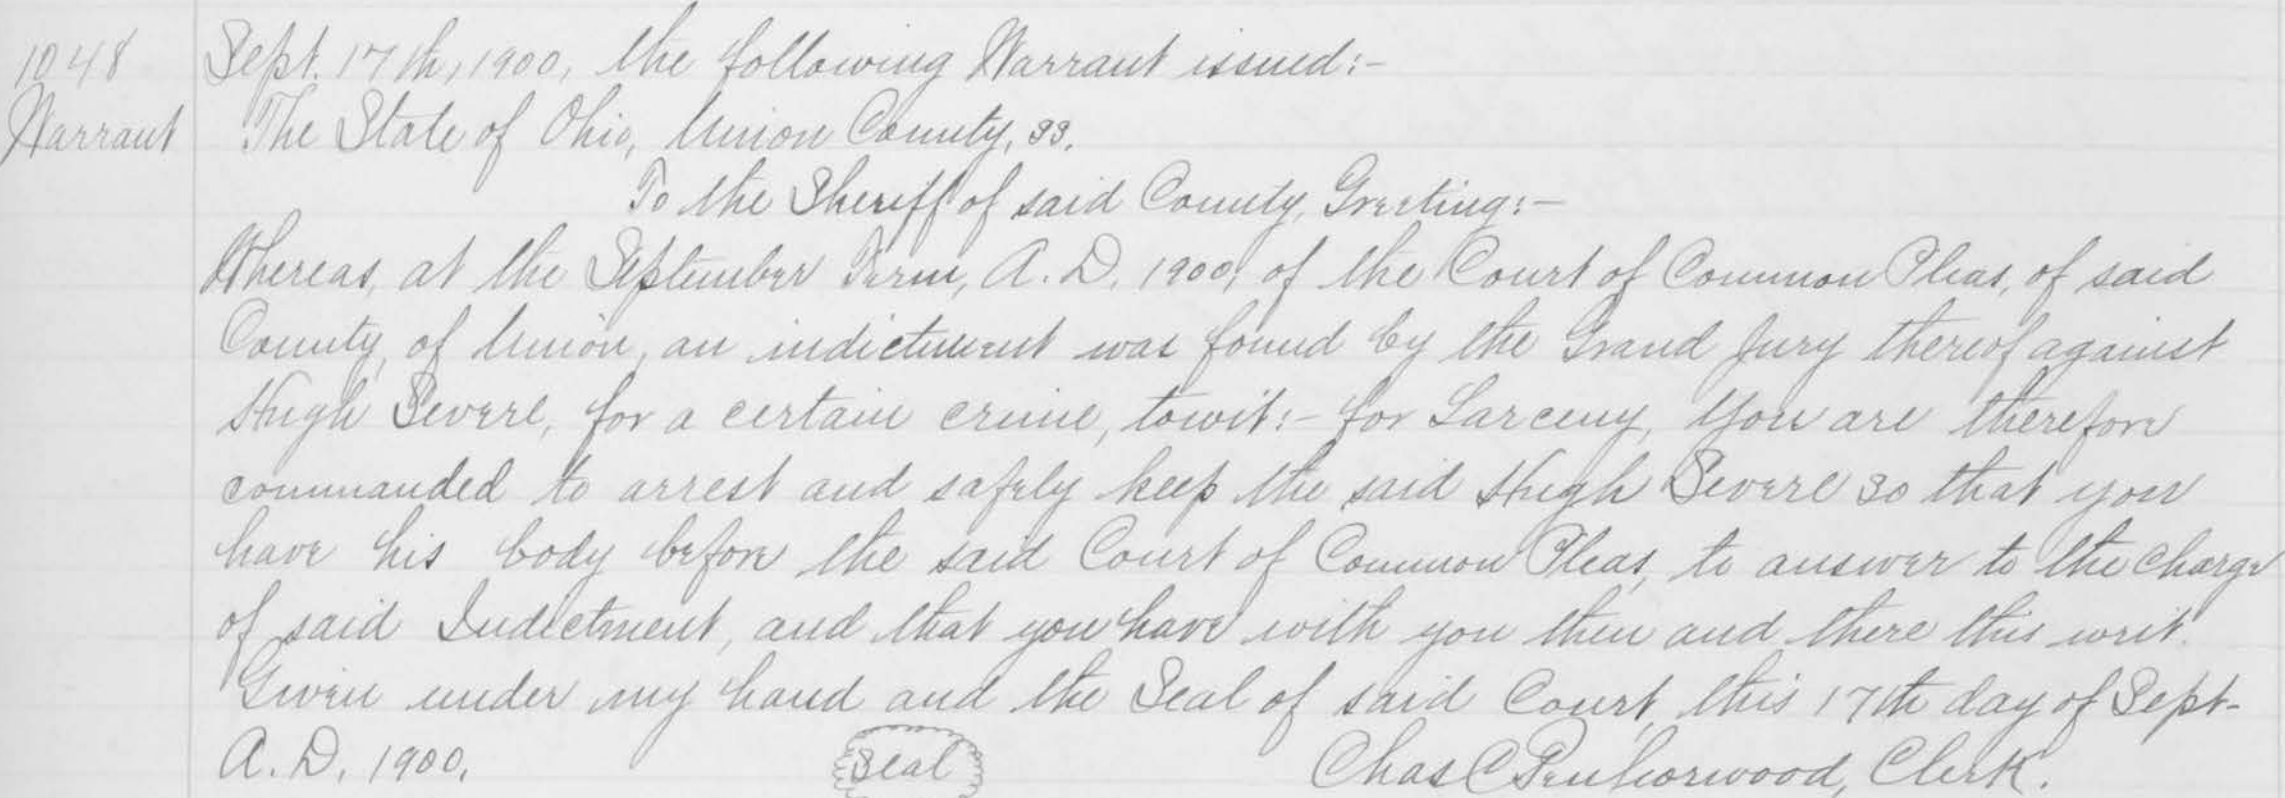 1048
Warrant
Sept. 17th, 1900, the following Warrant issued:-
The State of Ohio, Union County, ss.
To the Sheriff of said County, Greeting:-
Whereas, at the September Term, A. D. 1900, of the Court of Common Pleas, of said
County, of Union, an indictment was found by the Grand Jury thereof against
Hugh Severe, for a certain crime, towit:- for Larceny, You are therefore
commanded to arrest and safely keep the said Hugh Severe so that you
have his body before the said Court of Common Pleas, to answer to the charge
of said Indictment, and that you have with you then and there this writ.
Given under my hand and the Seal of said Court, this 17th day of Sept-
A. D. 1900.
Seal
Chas C Penhorwood, Clerk.